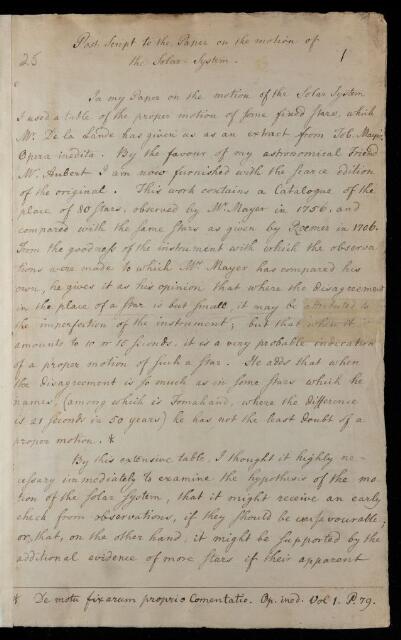 25
1
Post Script to the Paper on the motion of
the Solar-System.
In my Paper on the motion of the Solar System
I used a table of the proper motion of some fixed stars, which
Mr. De la Lande has given us as an extract from Tob. Mayeri
Opera inedita. By the favour of my astronomical Friend
Mr. Aubert I am now furnished with the scarce edition
of the original. This work contains a Catalogue of the
place of 80 stars, observed by Mr. Mayer in 1756, and
compared with the same stars as given by Roemer in 1706.
From the goodness of the instrument with which the observa-
tions were made to which Mr. Mayer has compared his
own, he gives it as his opinion that where the disagreement
in the place of a star is but small, it may be attributed to
the imperfection of the instrument; but that when it
amounts to 10 or 15 seconds, it is a very probable indication
of a proper motion of such a star. He adds that when
the disagreement is so much as in some stars which he
names, (among which is Fomahand, where the difference
is 21 seconds in 50 years) he has not the least doubt of a
proper motion. *
By this extensive table, I thought it highly ne-
cessary immediately to examine the hypothesis of the mo-
tion of the Solar System, that it might receive an early
check from observations, if they should be unfavourable;
or, that, on the other hand, it might be supported by the
additional evidence of more stars if their apparent
* De motu fixarum proprio Comentatio. Op. ined. Vol 1. P. 79.